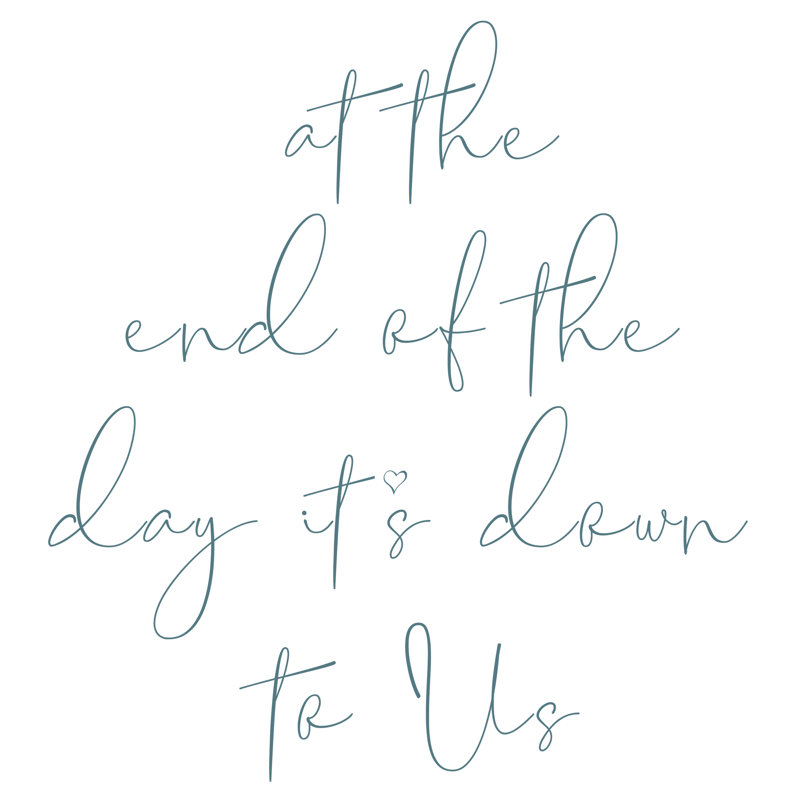 at the
end of the
day it's down
to Us